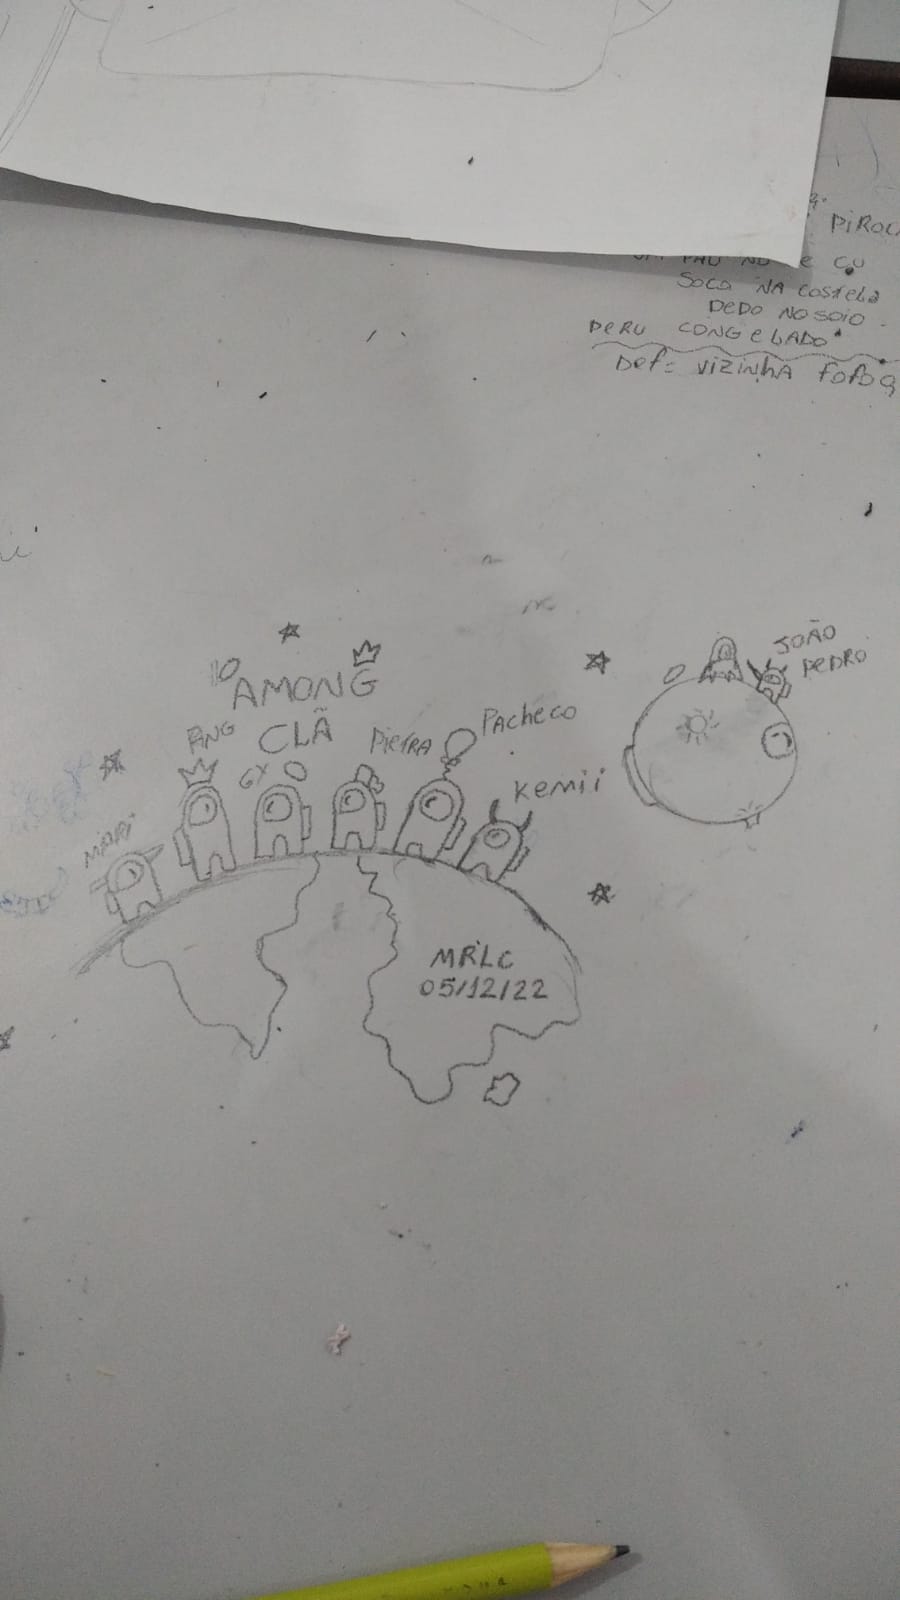 PIROCA
CU
SOCO NA COSTELA
DEDO NO SOIO
PERU CONGELADO
DEF= VIZINHA FOFOQ
10
AMONG
CLÃ
PING
GY
PIETRA
PACHECO
KEMII
JOÃO
PEDRO
MRLC
05/12/22